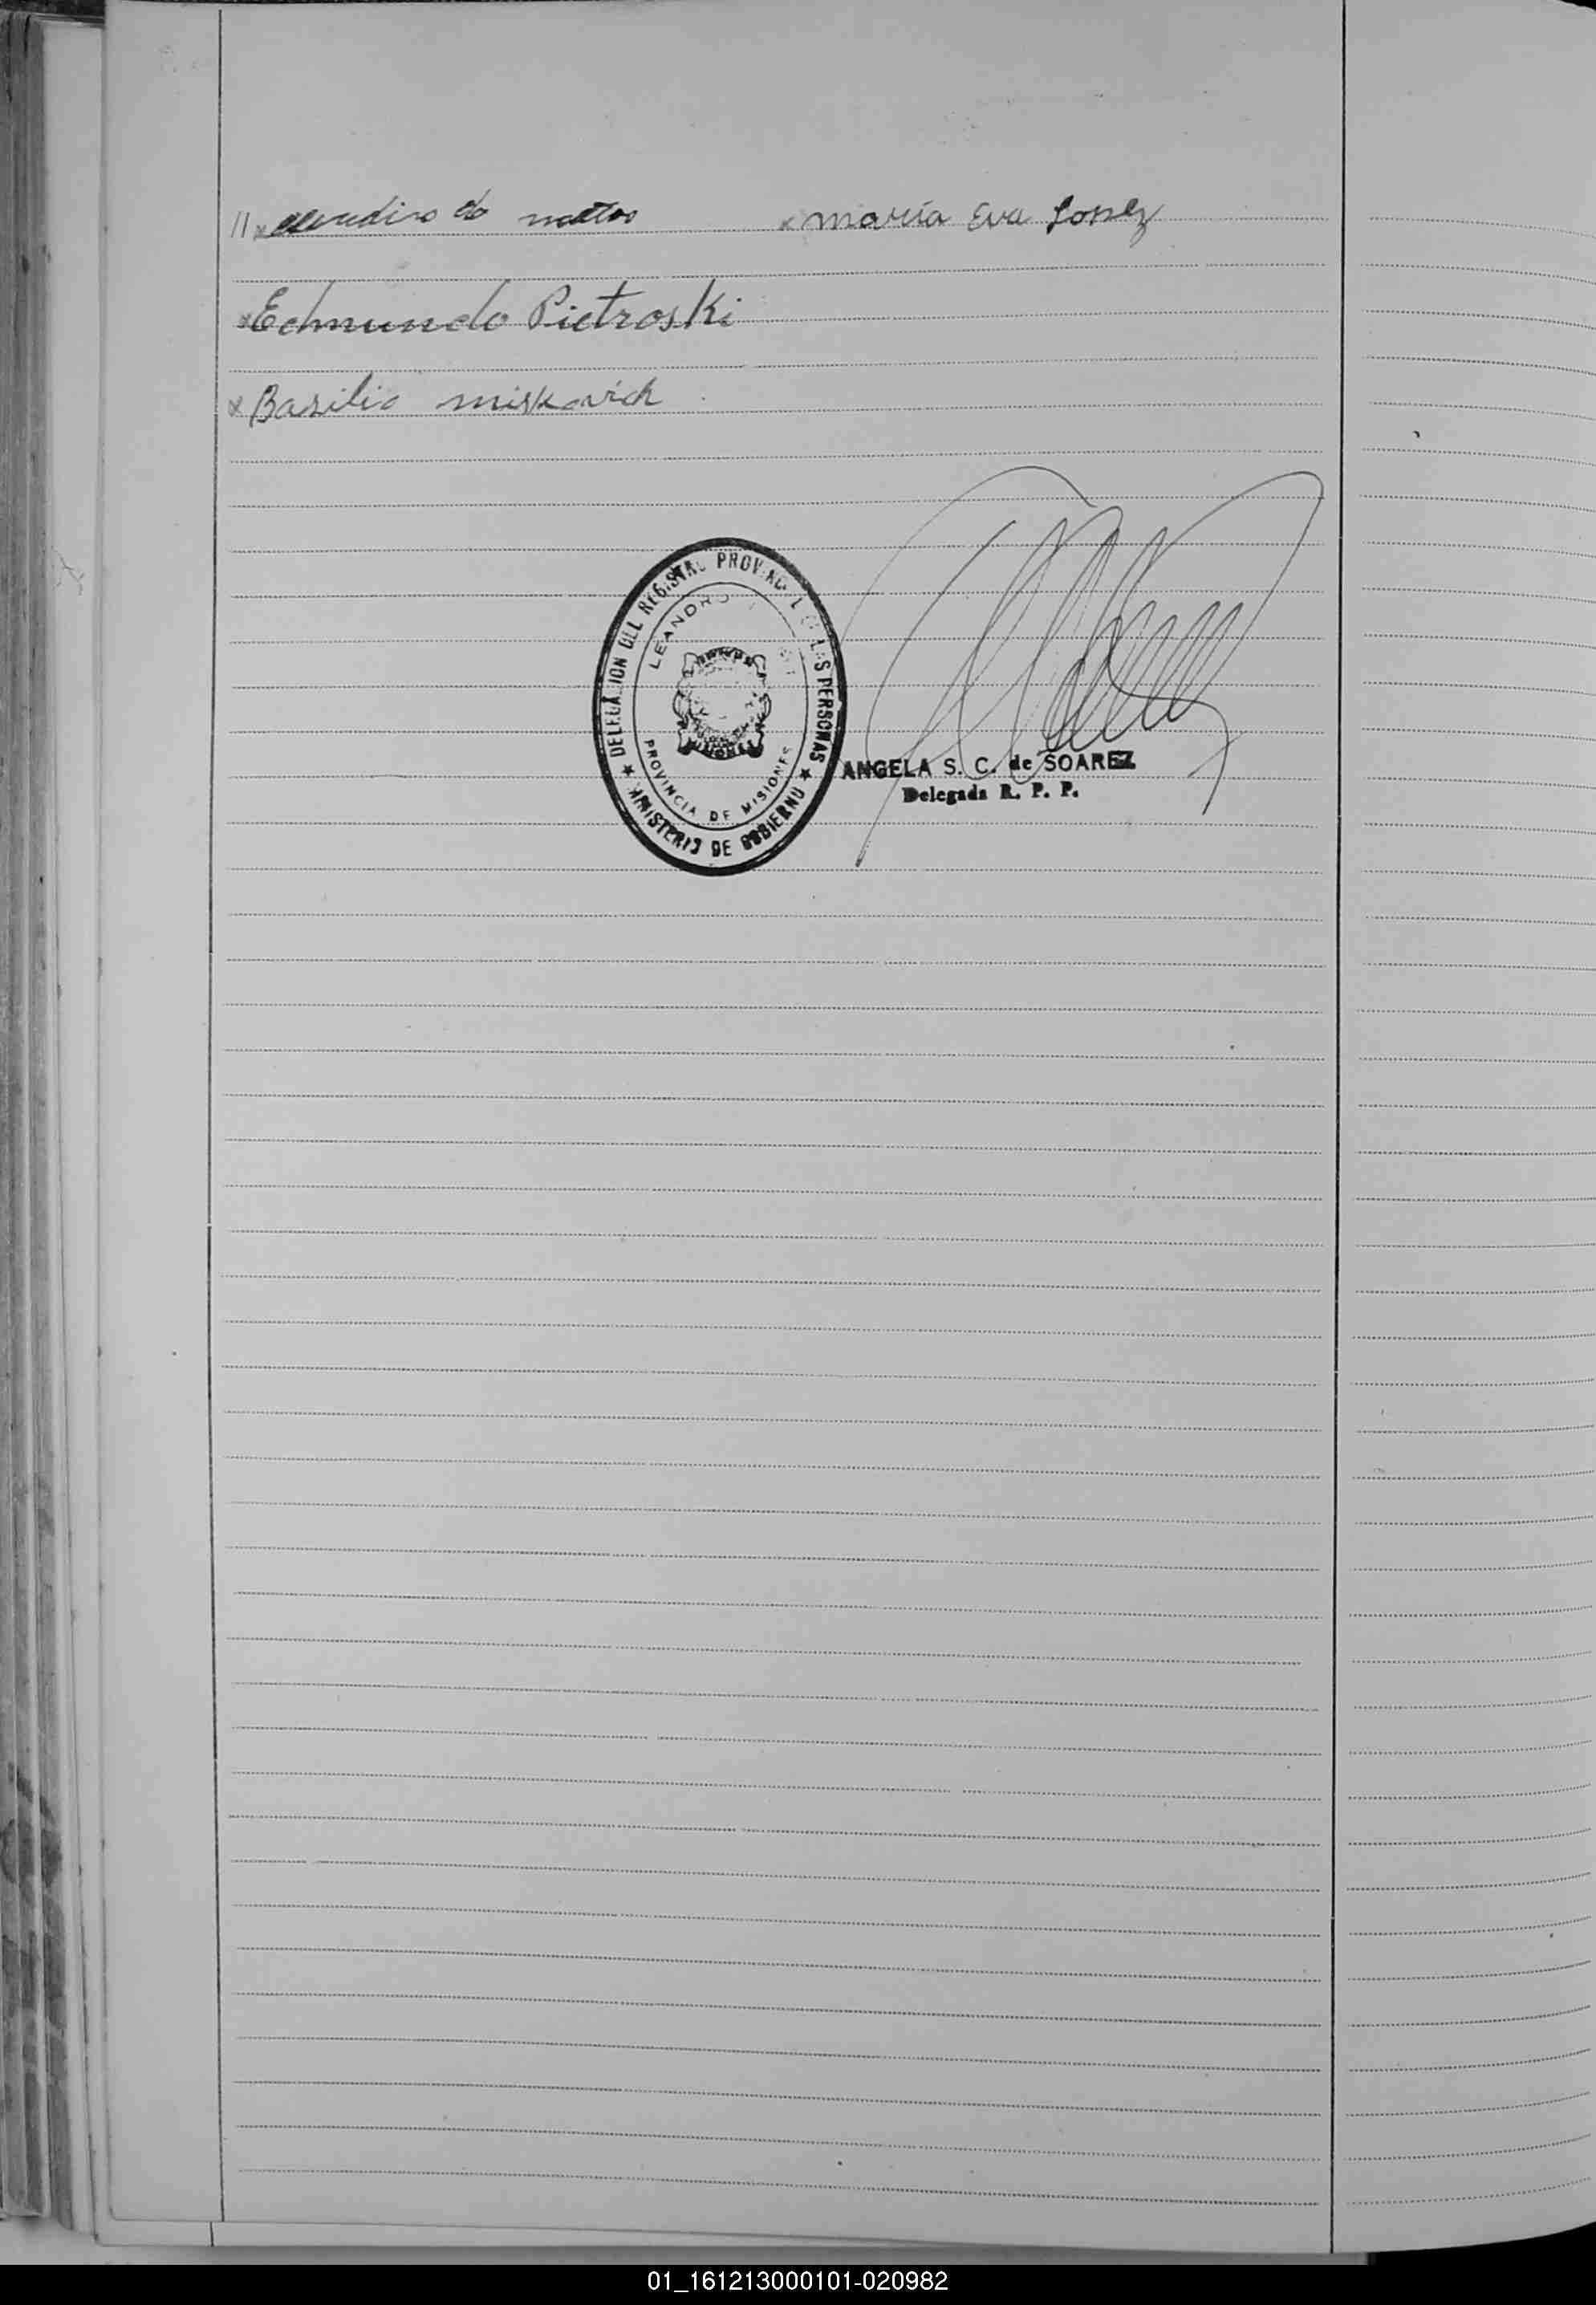 do mattos x maria Eva Lopez
x Edmundo Pietroski
x Basilio miskovich
★ DELEGACION DEL REGISTRO PROVINCIAL DE LAS PERSONAS ★
LEANDRO
PROVINCIA DE MISIONES
MINISTERIO DE GOBIERNO
ANGELA S. C. de SOAREZ
Delegada R. P. P.
01_161213000101-020982